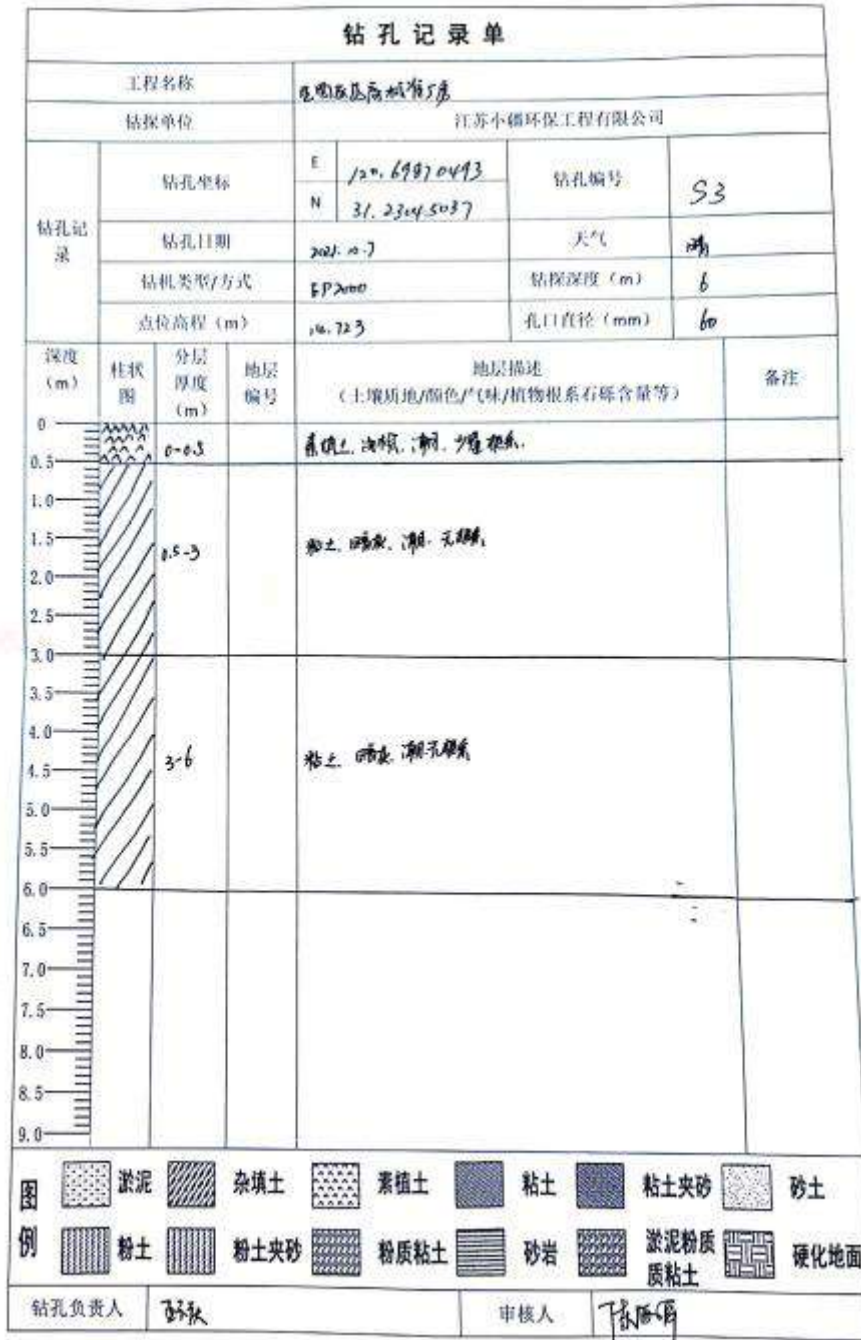 钻孔记录单
工程名称
钻探单位 江苏小疆环保工程有限公司
钻孔记录
钻孔坐标 E 120.69870493 钻孔编号 S3
N 31.23045037
钻孔日期 2021.10.7 天气 晴
钻机类型/方式 EP2000 钻探深度（m） 6
点位高程（m） 14.723 孔口直径（mm） 60
深度（m） 柱状图 分层厚度（m） 地层编号 地层描述（土壤质地/颜色/气味/植物根系石砾含量等） 备注
0
0-0.5 素填土、潮、少量根系
0.5
1.0
1.5
0.5-3 粘土、暗灰、潮、无根系
2.0
2.5
3.0
3.5
4.0
3-6 粘土、暗灰、潮、无根系
4.5
5.0
5.5
6.0
6.5
7.0
7.5
8.0
8.5
9.0
图例
淤泥 杂填土 素植土 粘土 粘土夹砂 砂土
粉土 粉土夹砂 粉质粘土 砂岩 淤泥粉质质粘土 硬化地面
钻孔负责人 审核人